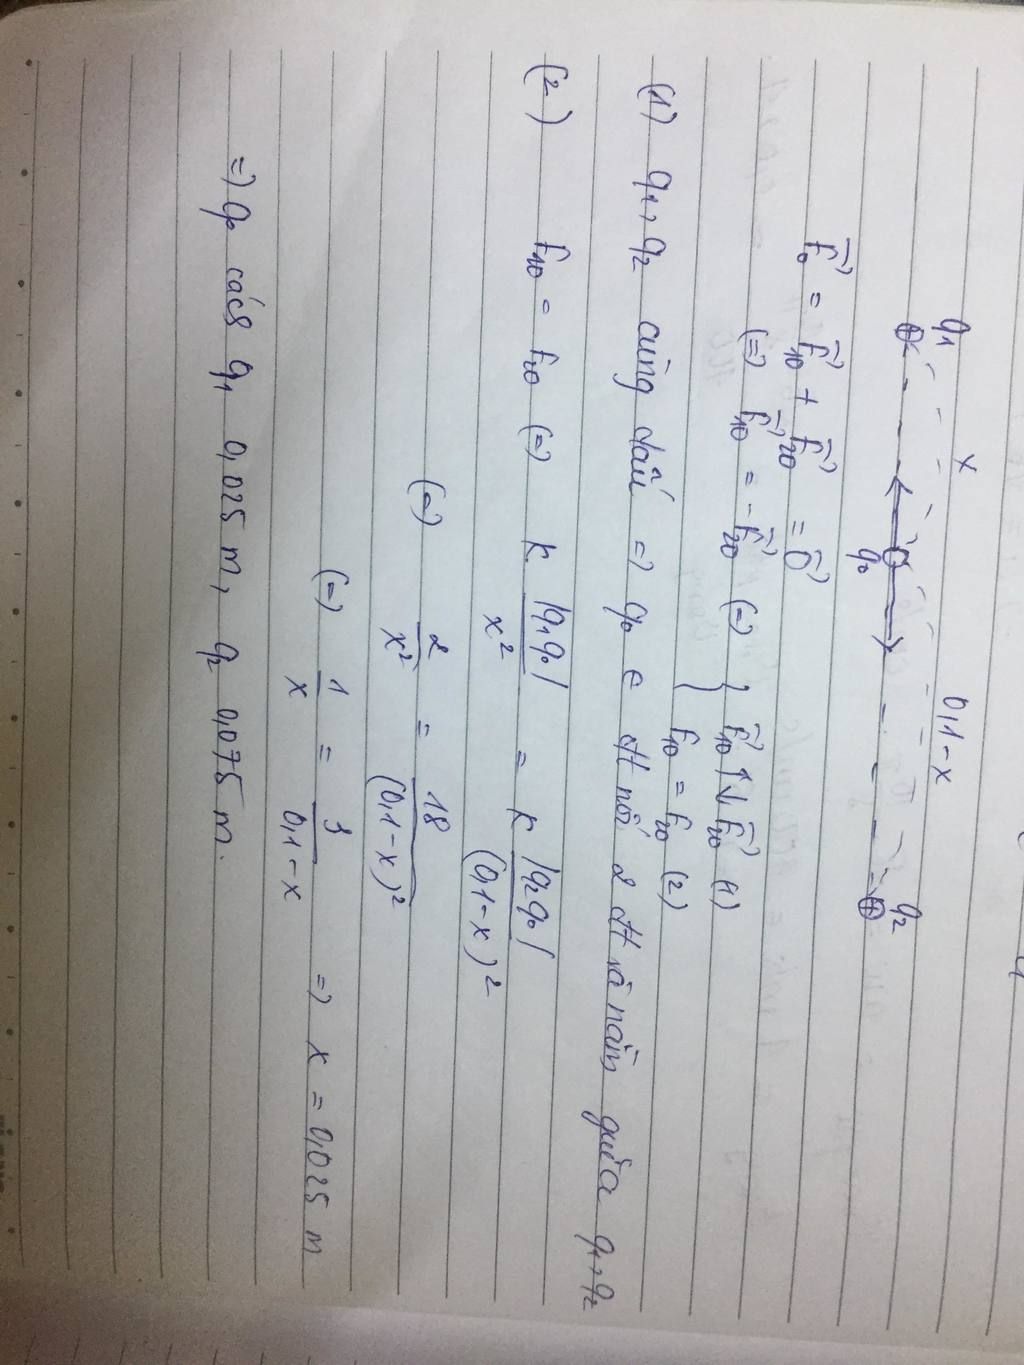 q₁ x 0,1-x q₂
q₀
F⃗₀ = F⃗₁₀ + F⃗₂₀ = 0⃗
(=) F⃗₁₀ = -F⃗₂₀ (=) } F⃗₁₀ ↑↓ F⃗₂₀ (1)
F₁₀ = F₂₀ (2)
(1) q₁, q₂ cùng dấu => q₀ ∈ đt nối 2 đt và nằm giữa q₁, q₂
(2) F₁₀ = F₂₀ (=) k. |q₁q₀| / x² = k |q₂q₀| / (0,1-x)²
(=) 2 / x² = 18 / (0,1-x)²
(=) 1 / x = 3 / 0,1-x => x = 0,025 m
=> q₀ cách q₁ 0,025 m, q₂ 0,075 m.